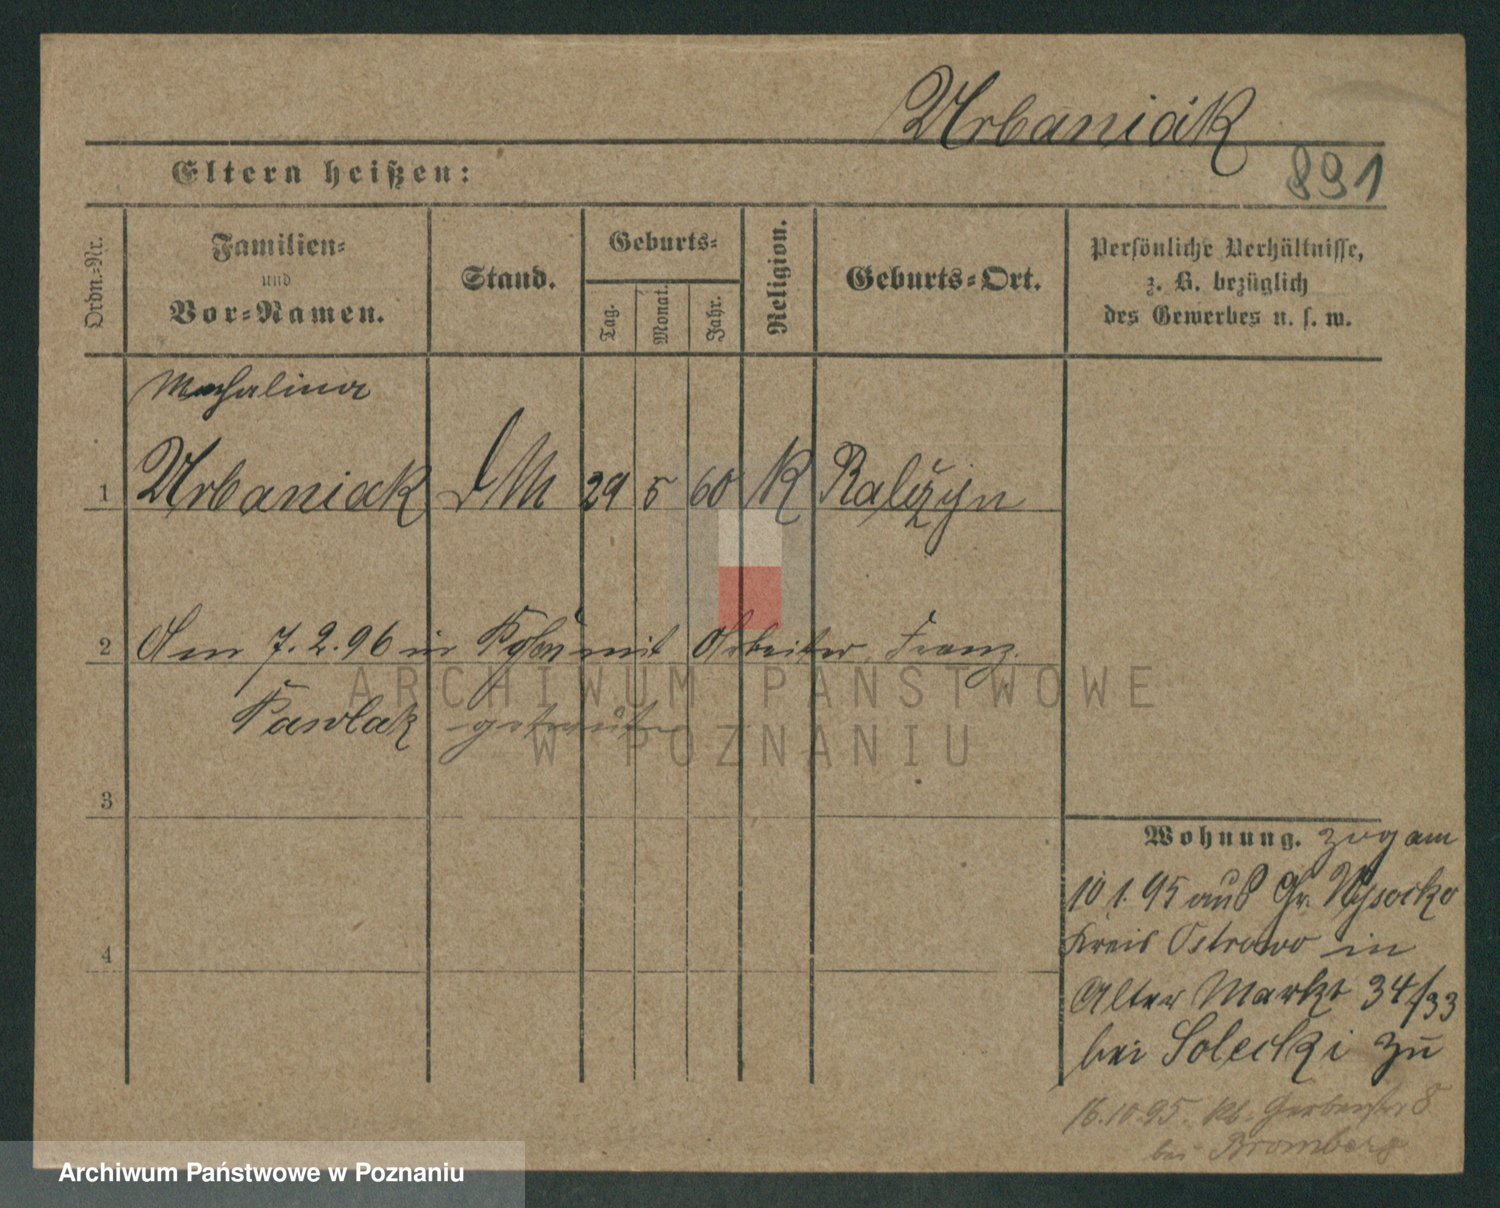 Urbaniak
891
Eltern heißen:
Ordn.=Nr.
Familien=
und
Vor=Namen.
Stand.
Geburts=
Tag.
Monat.
Jahr.
Religion.
Geburts=Ort.
Persönliche Verhältnisse,
z. B. bezüglich
des Gewerbes u. s. w.
Michalina
1 Urbaniak DM 29 5 60 K
2 Am 7.2.96 in mit Arbeiter Franz
Pawlak getraut
3
4
Wohnung. zog am
10 1. 95 aus Gr. Wysocko
Kreis Ostrowo in
Alter Markt 34/33
bei Solecki zu
16.10.95. Kl. Gerberstr 8
bei Bromberg
ARCHIWUM PAŃSTWOWE
W POZNANIU
Archiwum Państwowe w Poznaniu